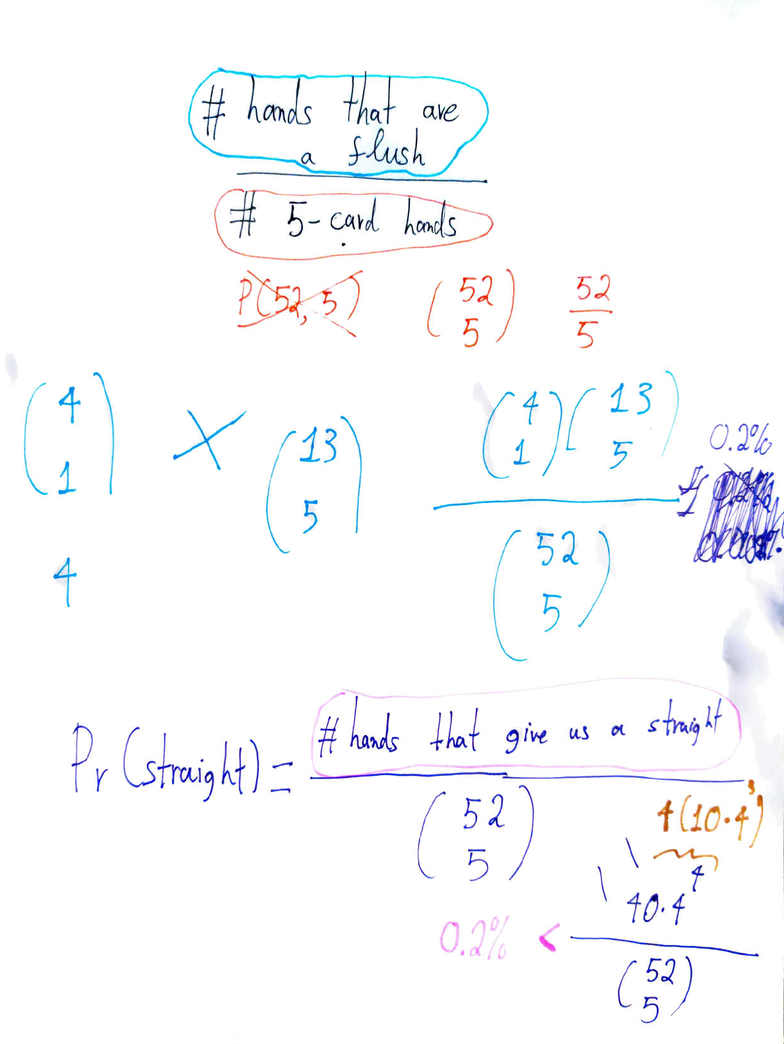 # hands that are
a flush
# 5-card hands
P(52, 5) (52 5) 52/5
(4 1) × (13 5) (4 1)(13 5) 0.2%
4 (52 5)
Pr(straight) = # hands that give us a straight
(52 5) 4(10·4
40·4⁴
0.2% < (52 5)